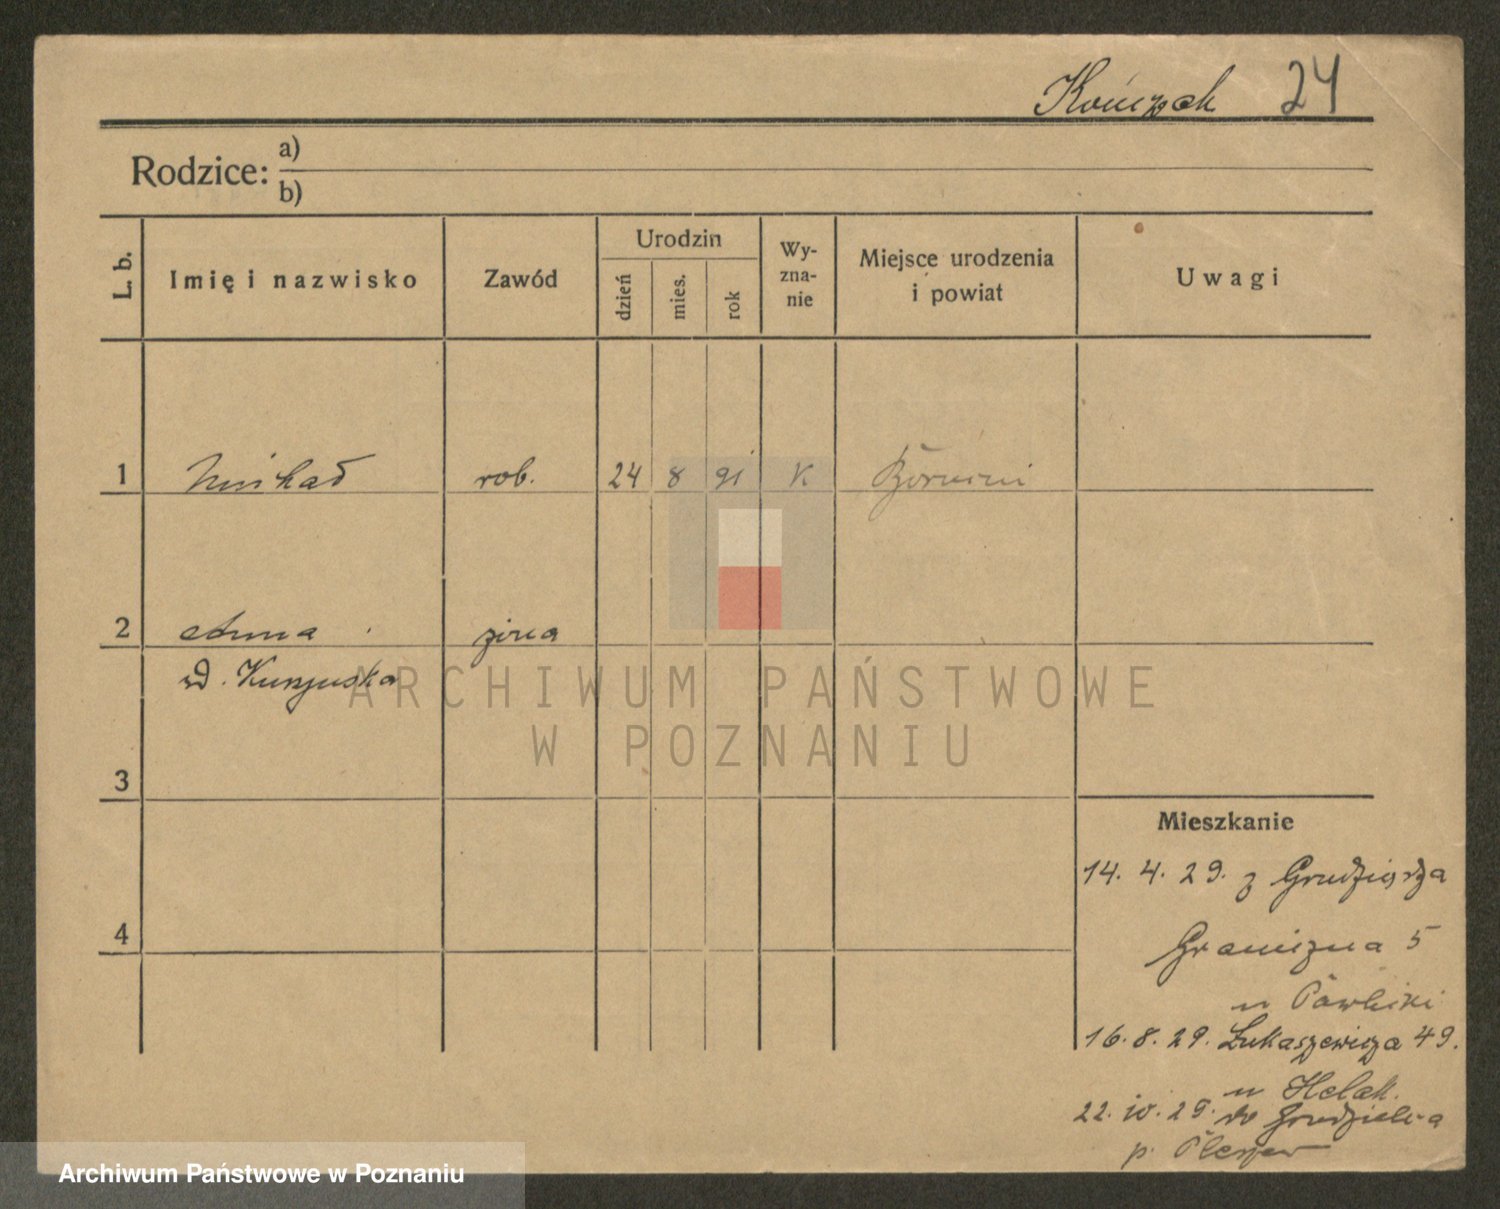 Kończak 24
Rodzice: a)
b)
L. b. Imię i nazwisko Zawód Urodzin dzień mies. rok Wy-zna-nie Miejsce urodzenia i powiat Uwagi
1 Michał rob. 24 8 91 K
2 Anna żona
ARCHIWUM PAŃSTWOWE
W POZNANIU
3
Mieszkanie
14. 4. 29. z Grudziądza
4
Graniczna 5
u Pawlicki
16. 8. 29. Łukaszewicza 49.
u Helak.
22. 10. 29. do
p. Pleszew
Archiwum Państwowe w Poznaniu